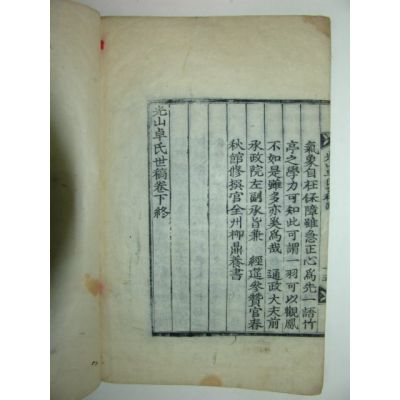 氣象自在保障雖急正心爲先一語竹
亭之學力可知此可謂一羽可以觀鳳
不如是雖多亦奚爲哉 通政大夫前
承政院左副承旨兼 經筵參贊官春
秋館修撰官全州柳鼎養書
光山卓氏世稿卷下終